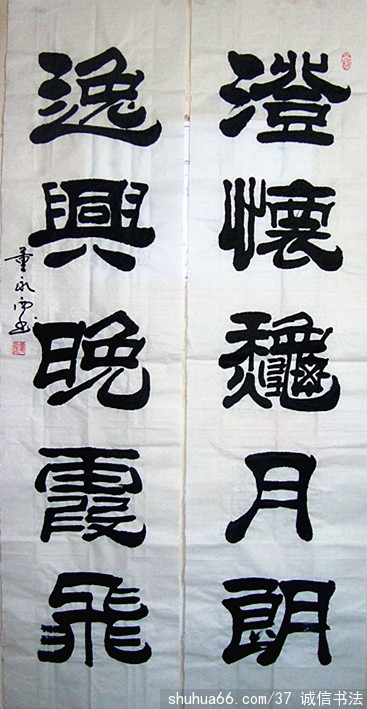 澄懷龝月朗
逸興晚霞飛
董永西书
shuhua66.com/37 诚信书法